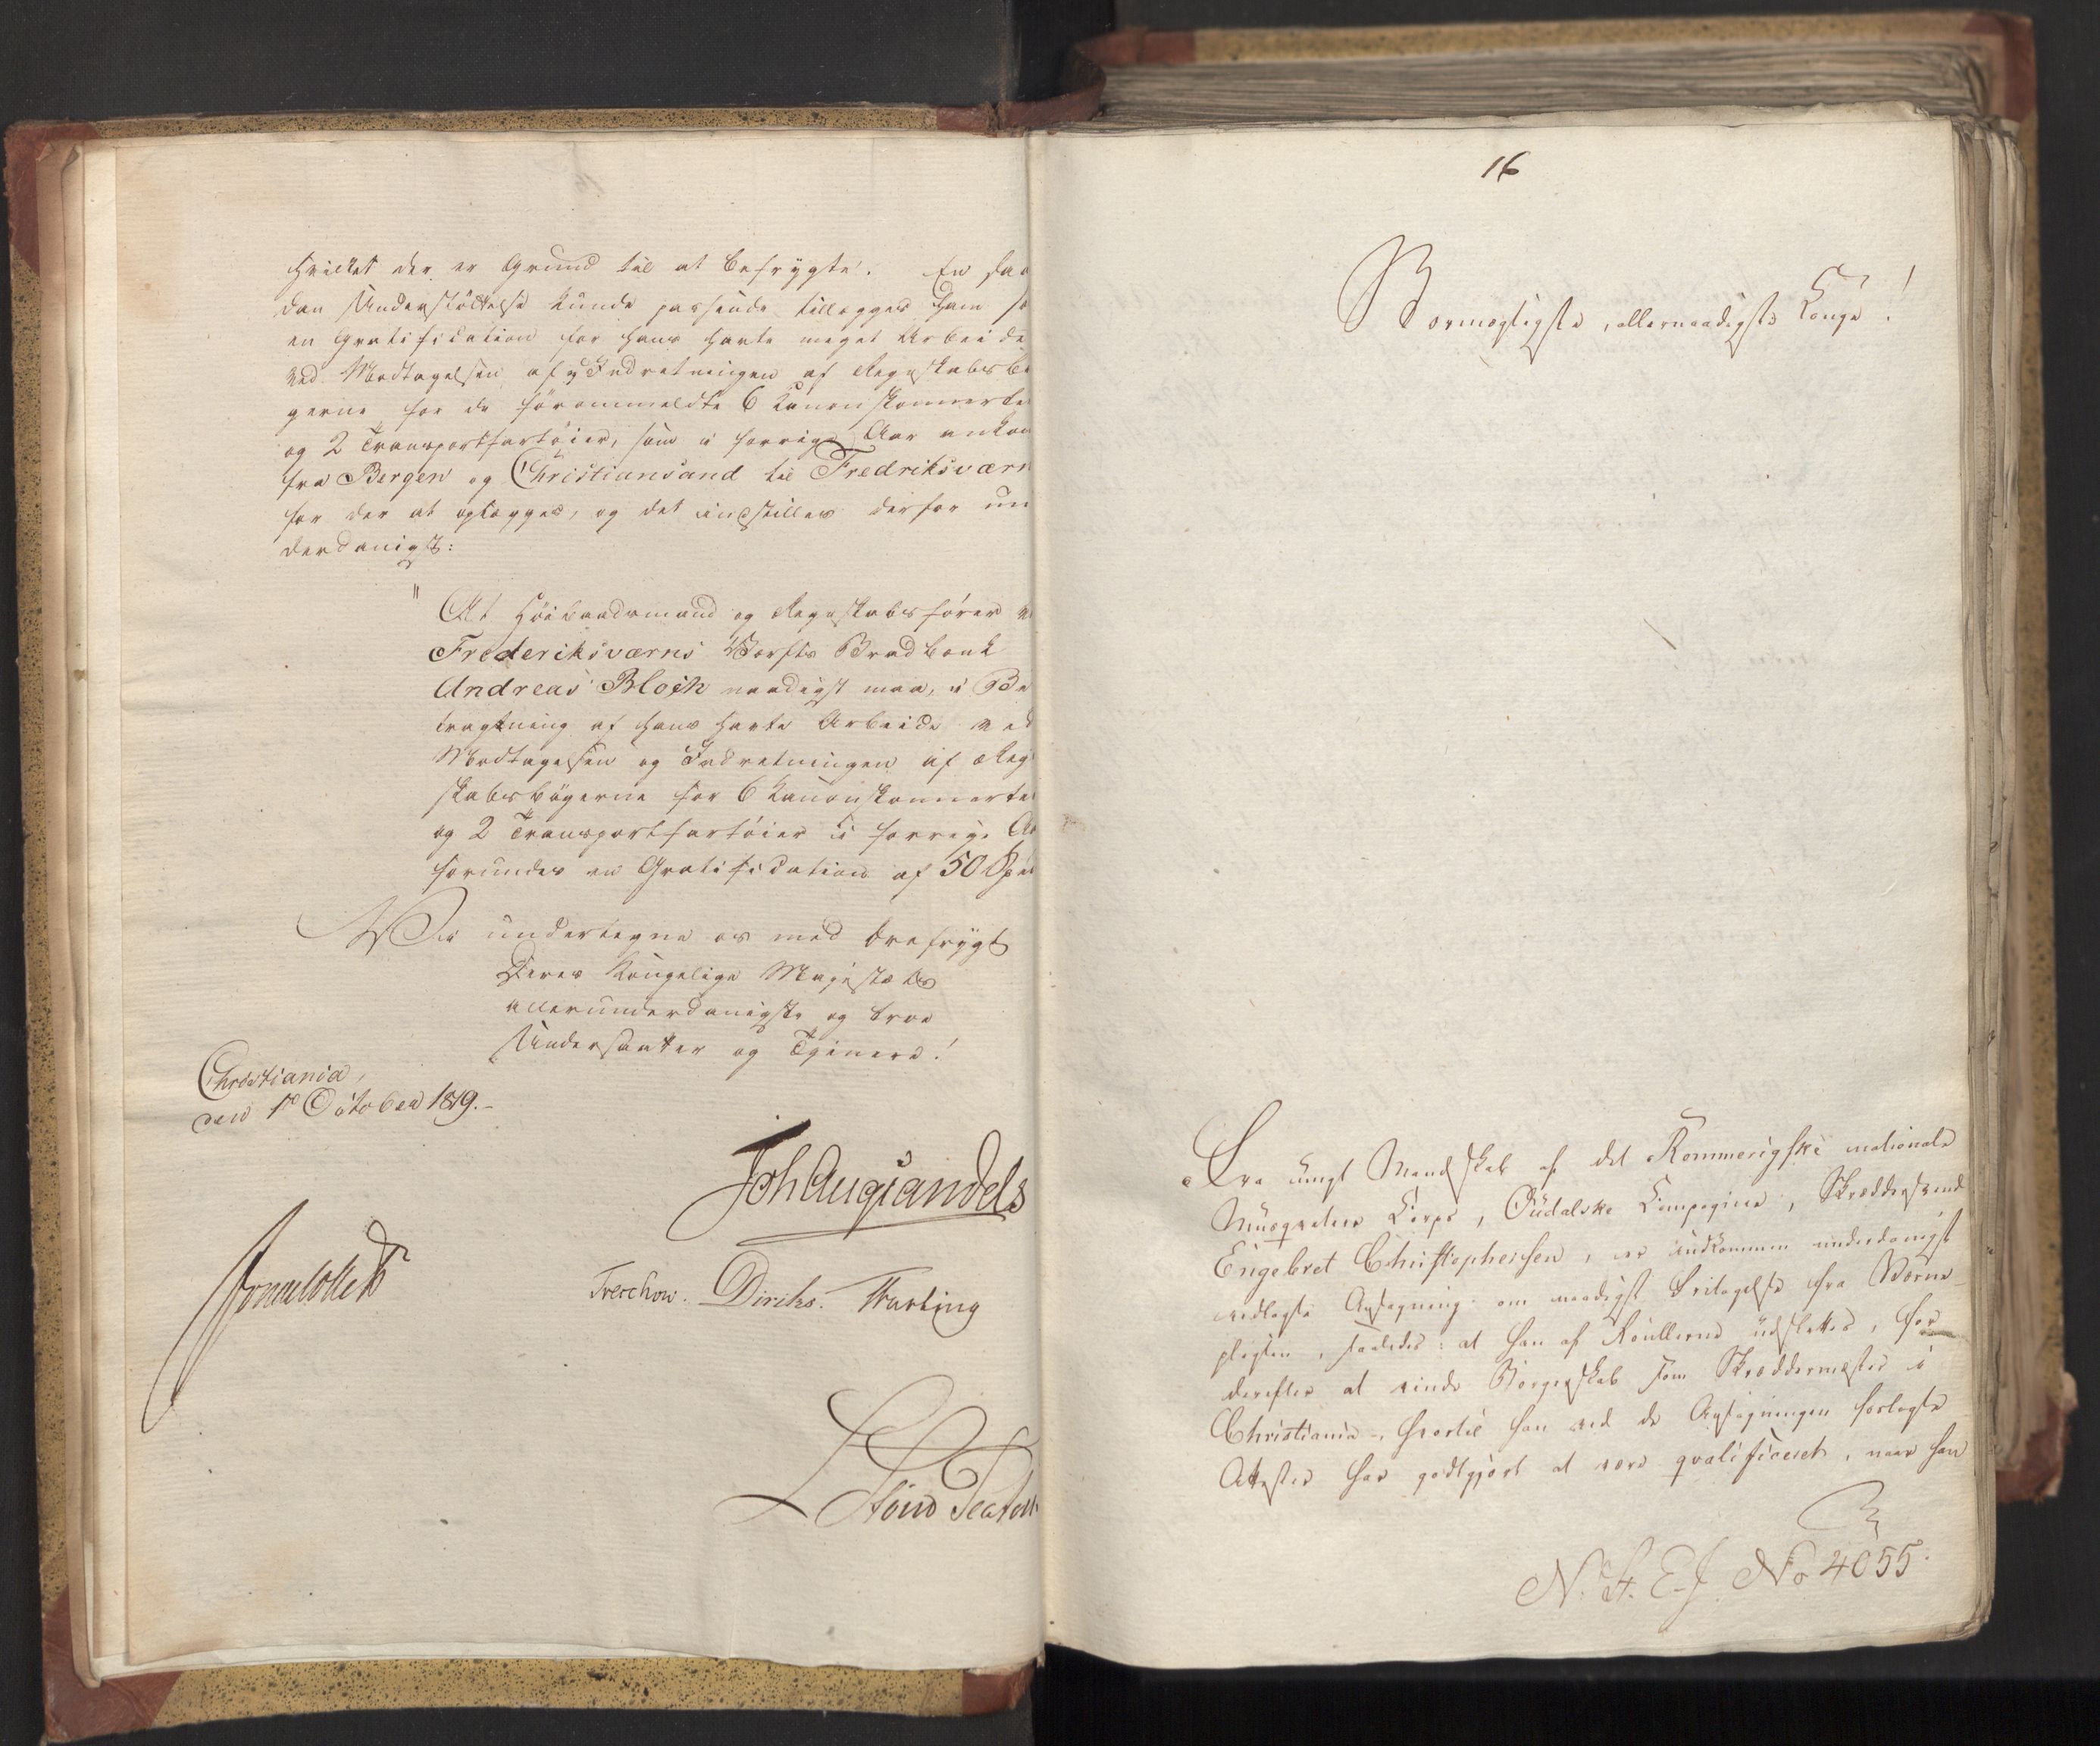 hvilket der er Grund til at befrygte. En saa
dan Understöttelse kunde passende tillægges ham so
en Gratification for hans havte meget Arbeide
ved Modtagelsen og Indretningen af Regnskabsbö
gerne for de förommeldte 6 Kanonskonnerter
og 2 Transportfartöier, som i forrige Aar ankom
fra Bergen og Christiansand til Fredriksværn
for der at oplægges, og det indstilles derfor un
derdanigst:
" At Höibaadsmand og Regnskabsförer v
Frederiksværns Værfts Bradbænk
Andreas Bloch naadigst maa, i Be
tragtning af hans havte Arbeide ved
Modtagelsen og Indretningen af Regn
skabsbögerne for 6 Kanonskonnerter
og 2 Transportfartöier i forrige Aa
forundes en Gratification af 50 Spd
Vi undertegne os med Ærefrygt
Deres Kongelige Majestæts
allerunderdanigste og troe
Undersaatter og Tjenere!
Christiania,
den 1e October 1819.
Joh Aug Sandels
Sommerhielm
Treschow. Diriks. Fasting
16
Stormægtigste, allernaadigste Konge!
Fra ungt Mandskab af det Rommerigske nationale
Musqveteer Corps, Oudalske Compagnie, Skreddersvend
Engebret Christophersen, er indkommen underdanigst
vedlagte Ansögning om naadigst Fritagelse fra Værne-
pligten, saaledes: at han af Roullerne udslettes, for
derefter at vinde Borgerskab som Skreddermester i
Christiania, hvortil han ved de Ansögningen forlagte
Attester har godtgjort at være qvalificeret, naar han
N. H. E. J. No 4055.